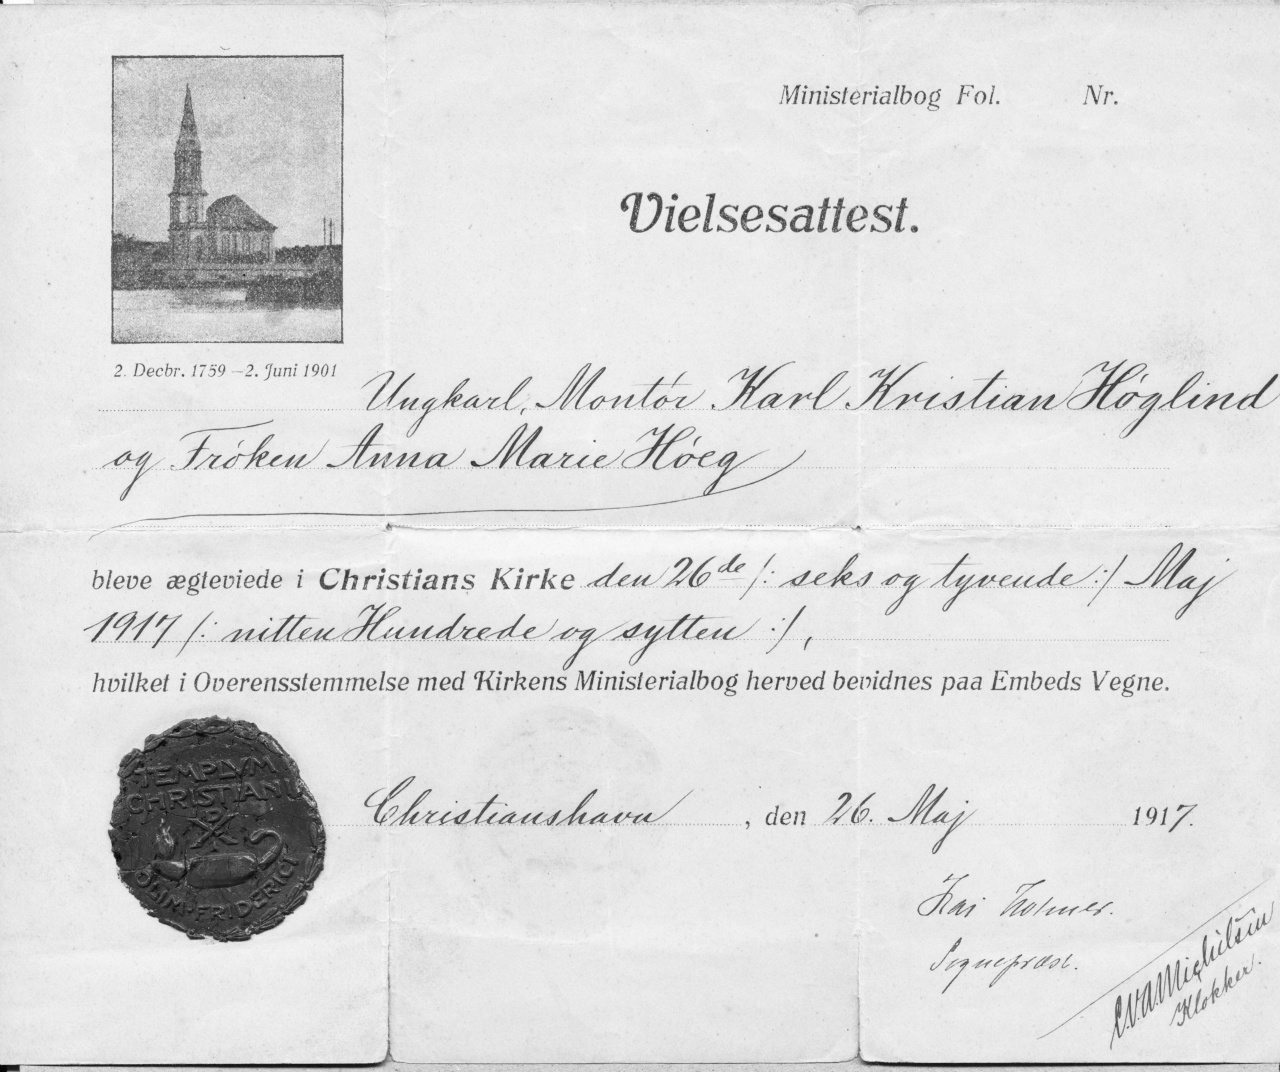 Ministerialbog Fol. Nr.
Vielsesattest.
2. Decbr. 1759 – 2. Juni 1901
Ungkarl, Montör Karl Kristian Höglind
og Fröken Anna Marie Höeg
bleve ægteviede i Christians Kirke den 26de /: seks og tyvende :/ Maj
1917 /: nitten Hundrede og sytten :/,
hvilket i Overensstemmelse med Kirkens Ministerialbog herved bevidnes paa Embeds Vegne.
TEMPLVM
CHRISTIANI
OLIM · FRIDERICI
Christianshavn, den 26. Maj 1917.
Kai Holmer.
Sognepræst.
C.V.A. Michelsen
Klokker.